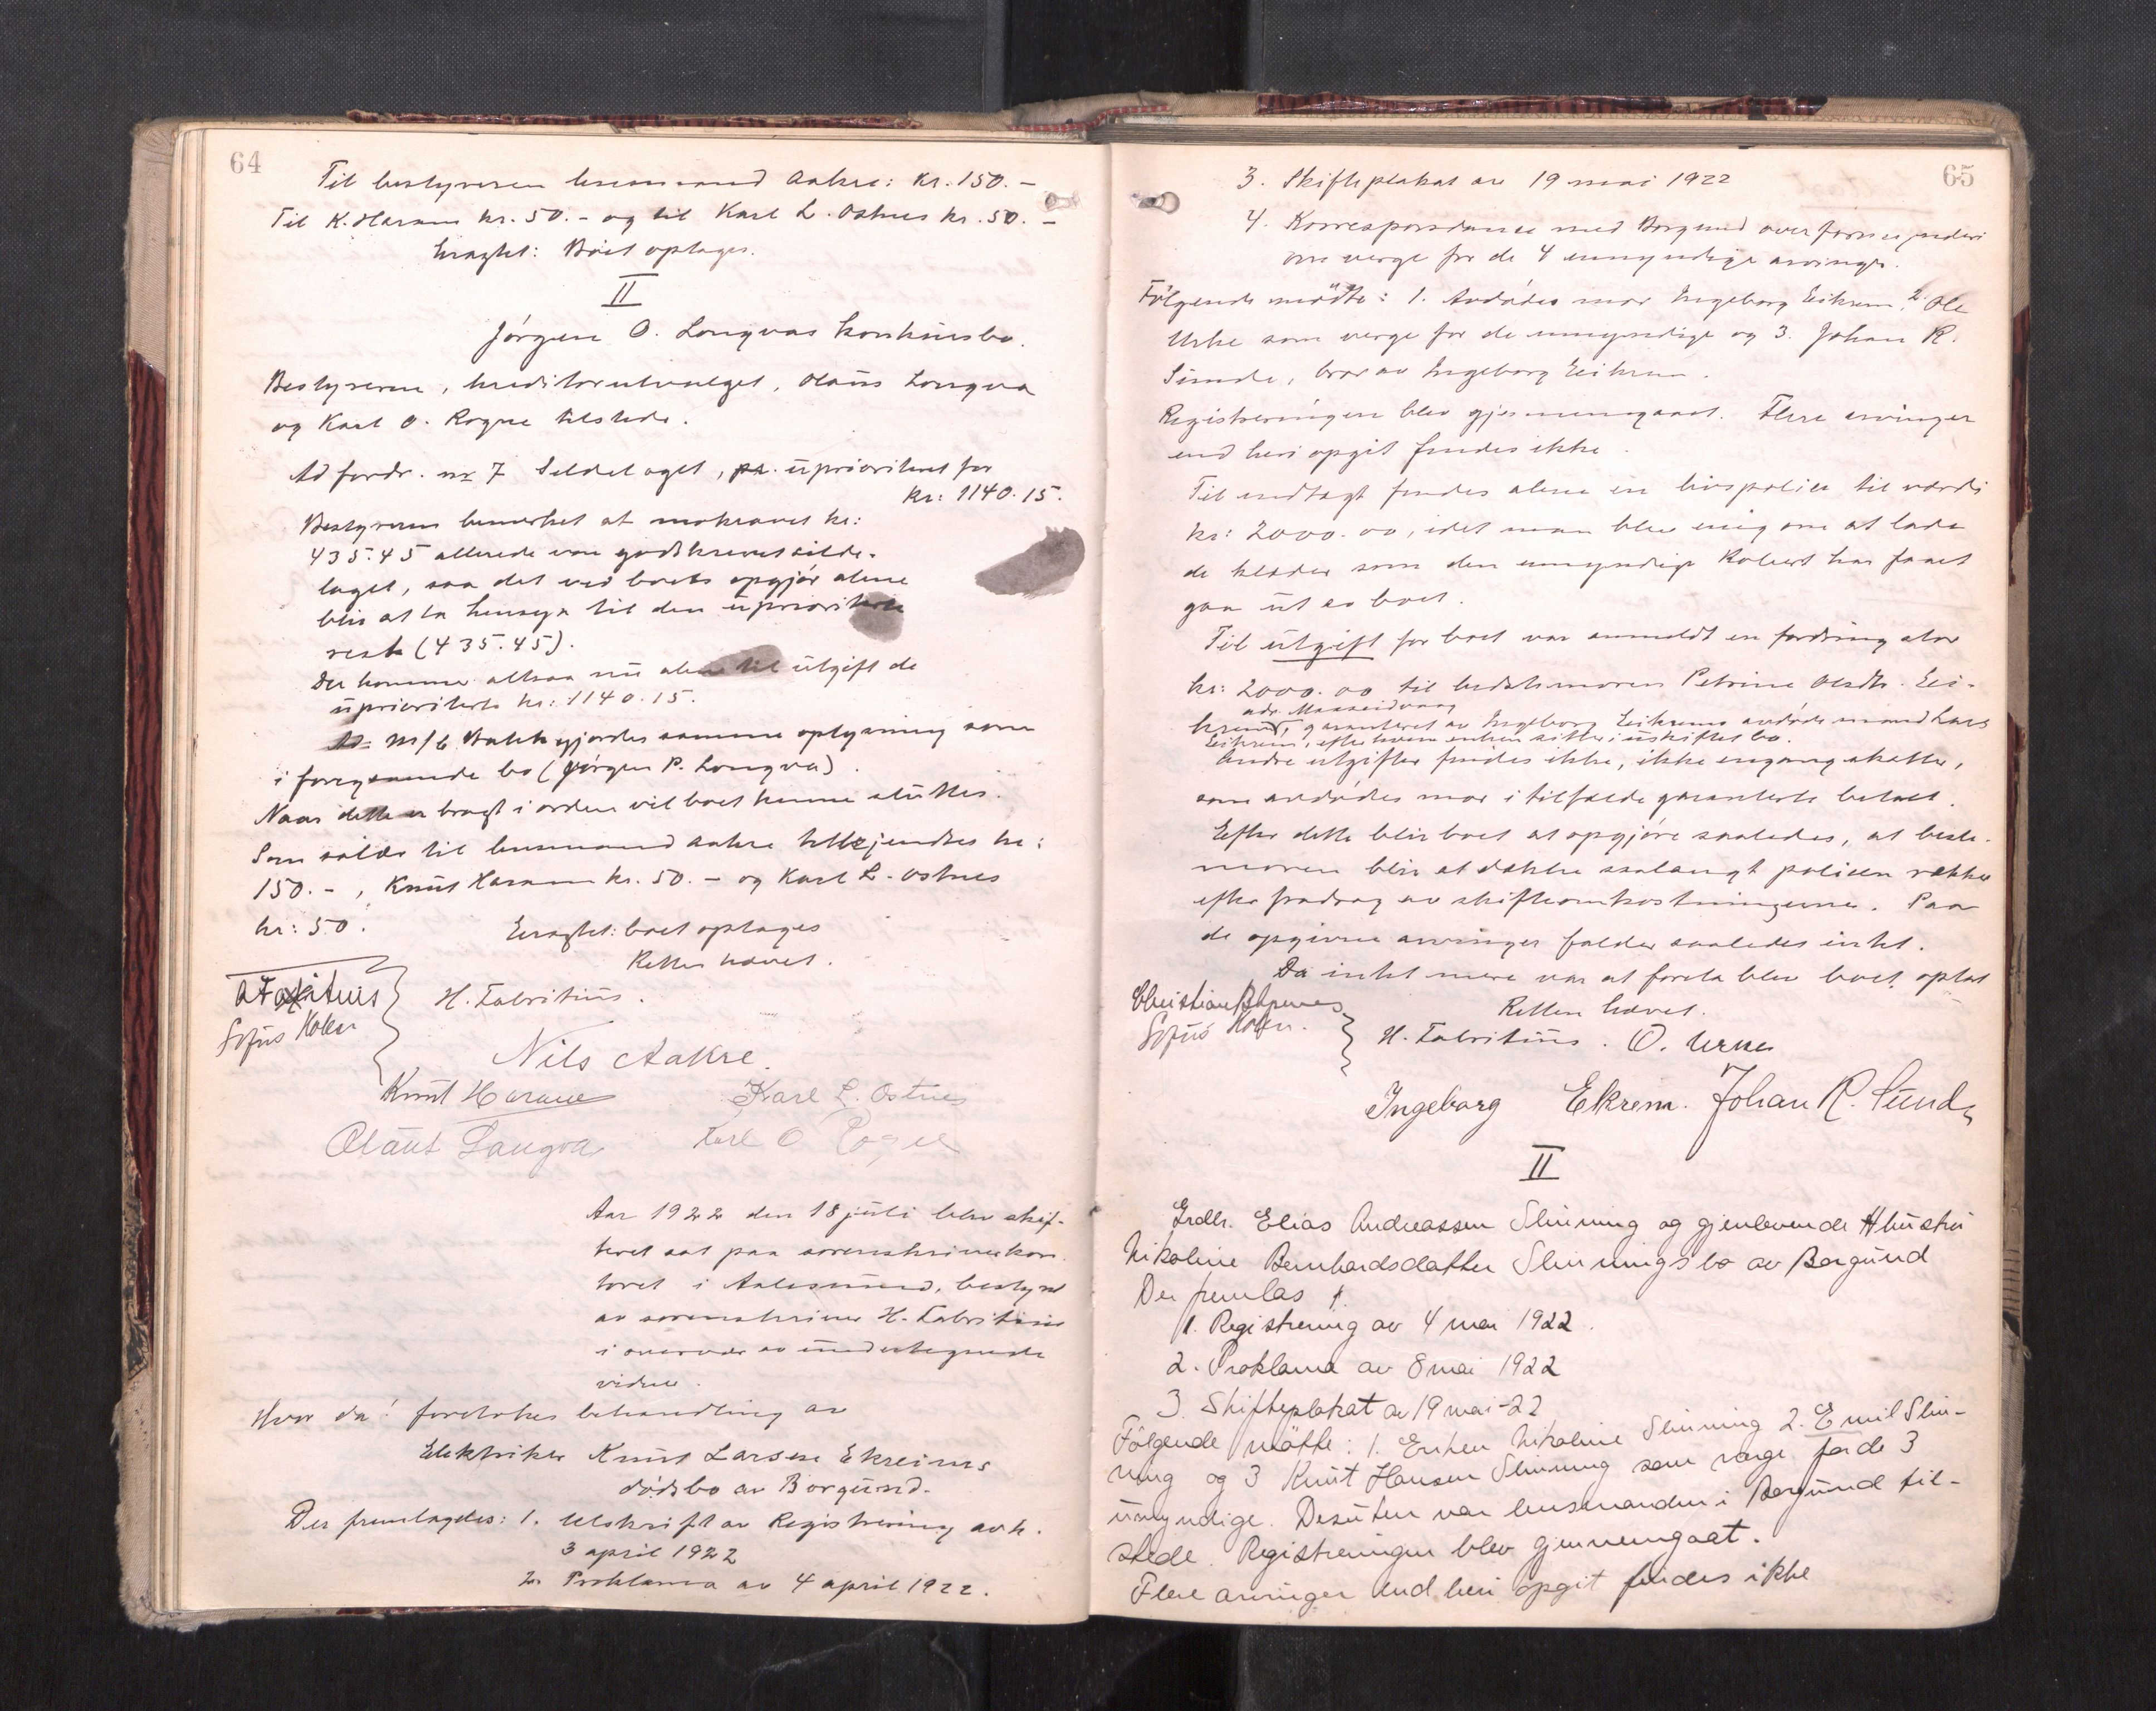 64
Til bestyreren lensmand Aakre: kr. 150.-
Til K. Haram kr. 50.- og til Karl L. Ostnes kr. 50.-
Eragtet: Boet optages.
II
Jörgen O. Longvas konkursbo.
Bestyreren, kreditorutvalget, Olaus Longva
og Karl O. Rogne tilstede.
Ad fordr. nr 7 Sildelaget, uprioritert for
kr: 1140.15.
Bestyreren bemerket at motkravet kr:
435.45 allerede var godskrevet silde-
laget, saa det ved boets opgjör alene
blir at ta hensyn til den uprioriterte
rest (435.45).
Der kommer altsaa nu alene til utgift de
uprioriterte kr: 1140.15.
Ad M/b gjordes samme oplysning som
i foregaaende bo (Jörgen P. Longva).
Naar dette er bragt i orden vil boet kunne sluttes.
Som salær til lensmand Aakre tilkjendtes kr:
150.-, Knut Haram kr. 50.- og Karl L. Ostnes
kr: 50.
Eragtet: boet optages
Retten hævet.
H. Fabritius.
Sofus Holen
Nils Aakre.
Knut Haram
Karl L. Ostnes
Olaus Longva
Karl O Rogne
Aar 1922 den 18 juli blev skif-
teret sat paa sorenskriverkon-
toret i Aalesund, bestyrt
av sorenskriver H. Fabritius
i overvær av undertegnede
vidner.
Hvor da! foretokes behandling av
Elektriker Knut Larsen Ekreims
dödsbo av Borgund.
Der fremlagdes: 1. Utskrift av Registrering avh.
3 april 1922
2. Proklama av 4 april 1922.
65
3. Skifteplakat av 19 mai 1922
4. Korrespondanse med Borgund overformynderi
om verge for de 4 umyndige arvinger.
Fölgende mödte: 1. Avdödes mor Ingeborg Eikrem, 2. Ole
Urke som verge for de umyndige og 3. Johan R.
Sunde, bror av Ingeborg Eikrem.
Registreringen blev gjennemgaat. Flere arvinger
end heri opgit findes ikke.
Til indtægt findes alene en livspolice til værdi
kr: 2000.00, idet man blev enig om at lade
de klæder som den umyndige Robert har faaet
gaa ut av boet.
Til utgift for boet var anmeldt en fordring stor
kr: 2000.00 til bedstemoren Petrine Olsdtr. Ei-
krem, garanteret av Ingeborg Eikrems avdöde mand Lars
adr. Masseidvaag
Eikrem, efter hvem enken sitter i uskiftet bo.
Andre utgifter findes ikke, ikke engang skatter,
som avdödes mor i tilfælde garanterte betalt.
Efter dette blir boet at opgjöre saaledes, at beste-
moren blir at dække saalangt policen rækker
efter fradrag av skifteomkostningerne. Paa
de opgivne arvinger falder saaledes intet.
Da intet mere var at foreta blev boet optat
Retten hævet.
Sofus Holen.
H. Fabritius. O. Urke
Ingeborg Ekrem. Johan R. Sunde
II
Grdbr. Elias Andreassen Slinning og gjenlevende Hustru
Nikoline Bernhardsdatter Slinnings bo av Borgund
Der fremlas
1. Registrering av 4 mai 1922.
2. Proklama av 8 mai 1922
3. Skifteplakat av 19 mai-22
Fölgende mötte: 1. Enken Nikoline Slinning 2. Emil Slin-
ning og 3 Knut Hansen Slinning som verge for de 3
umyndige. Desuten var lensmanden i Borgund til-
stede. Registreringen blev gjennemgaat.
Flere arvinger end heri opgit findes ikke